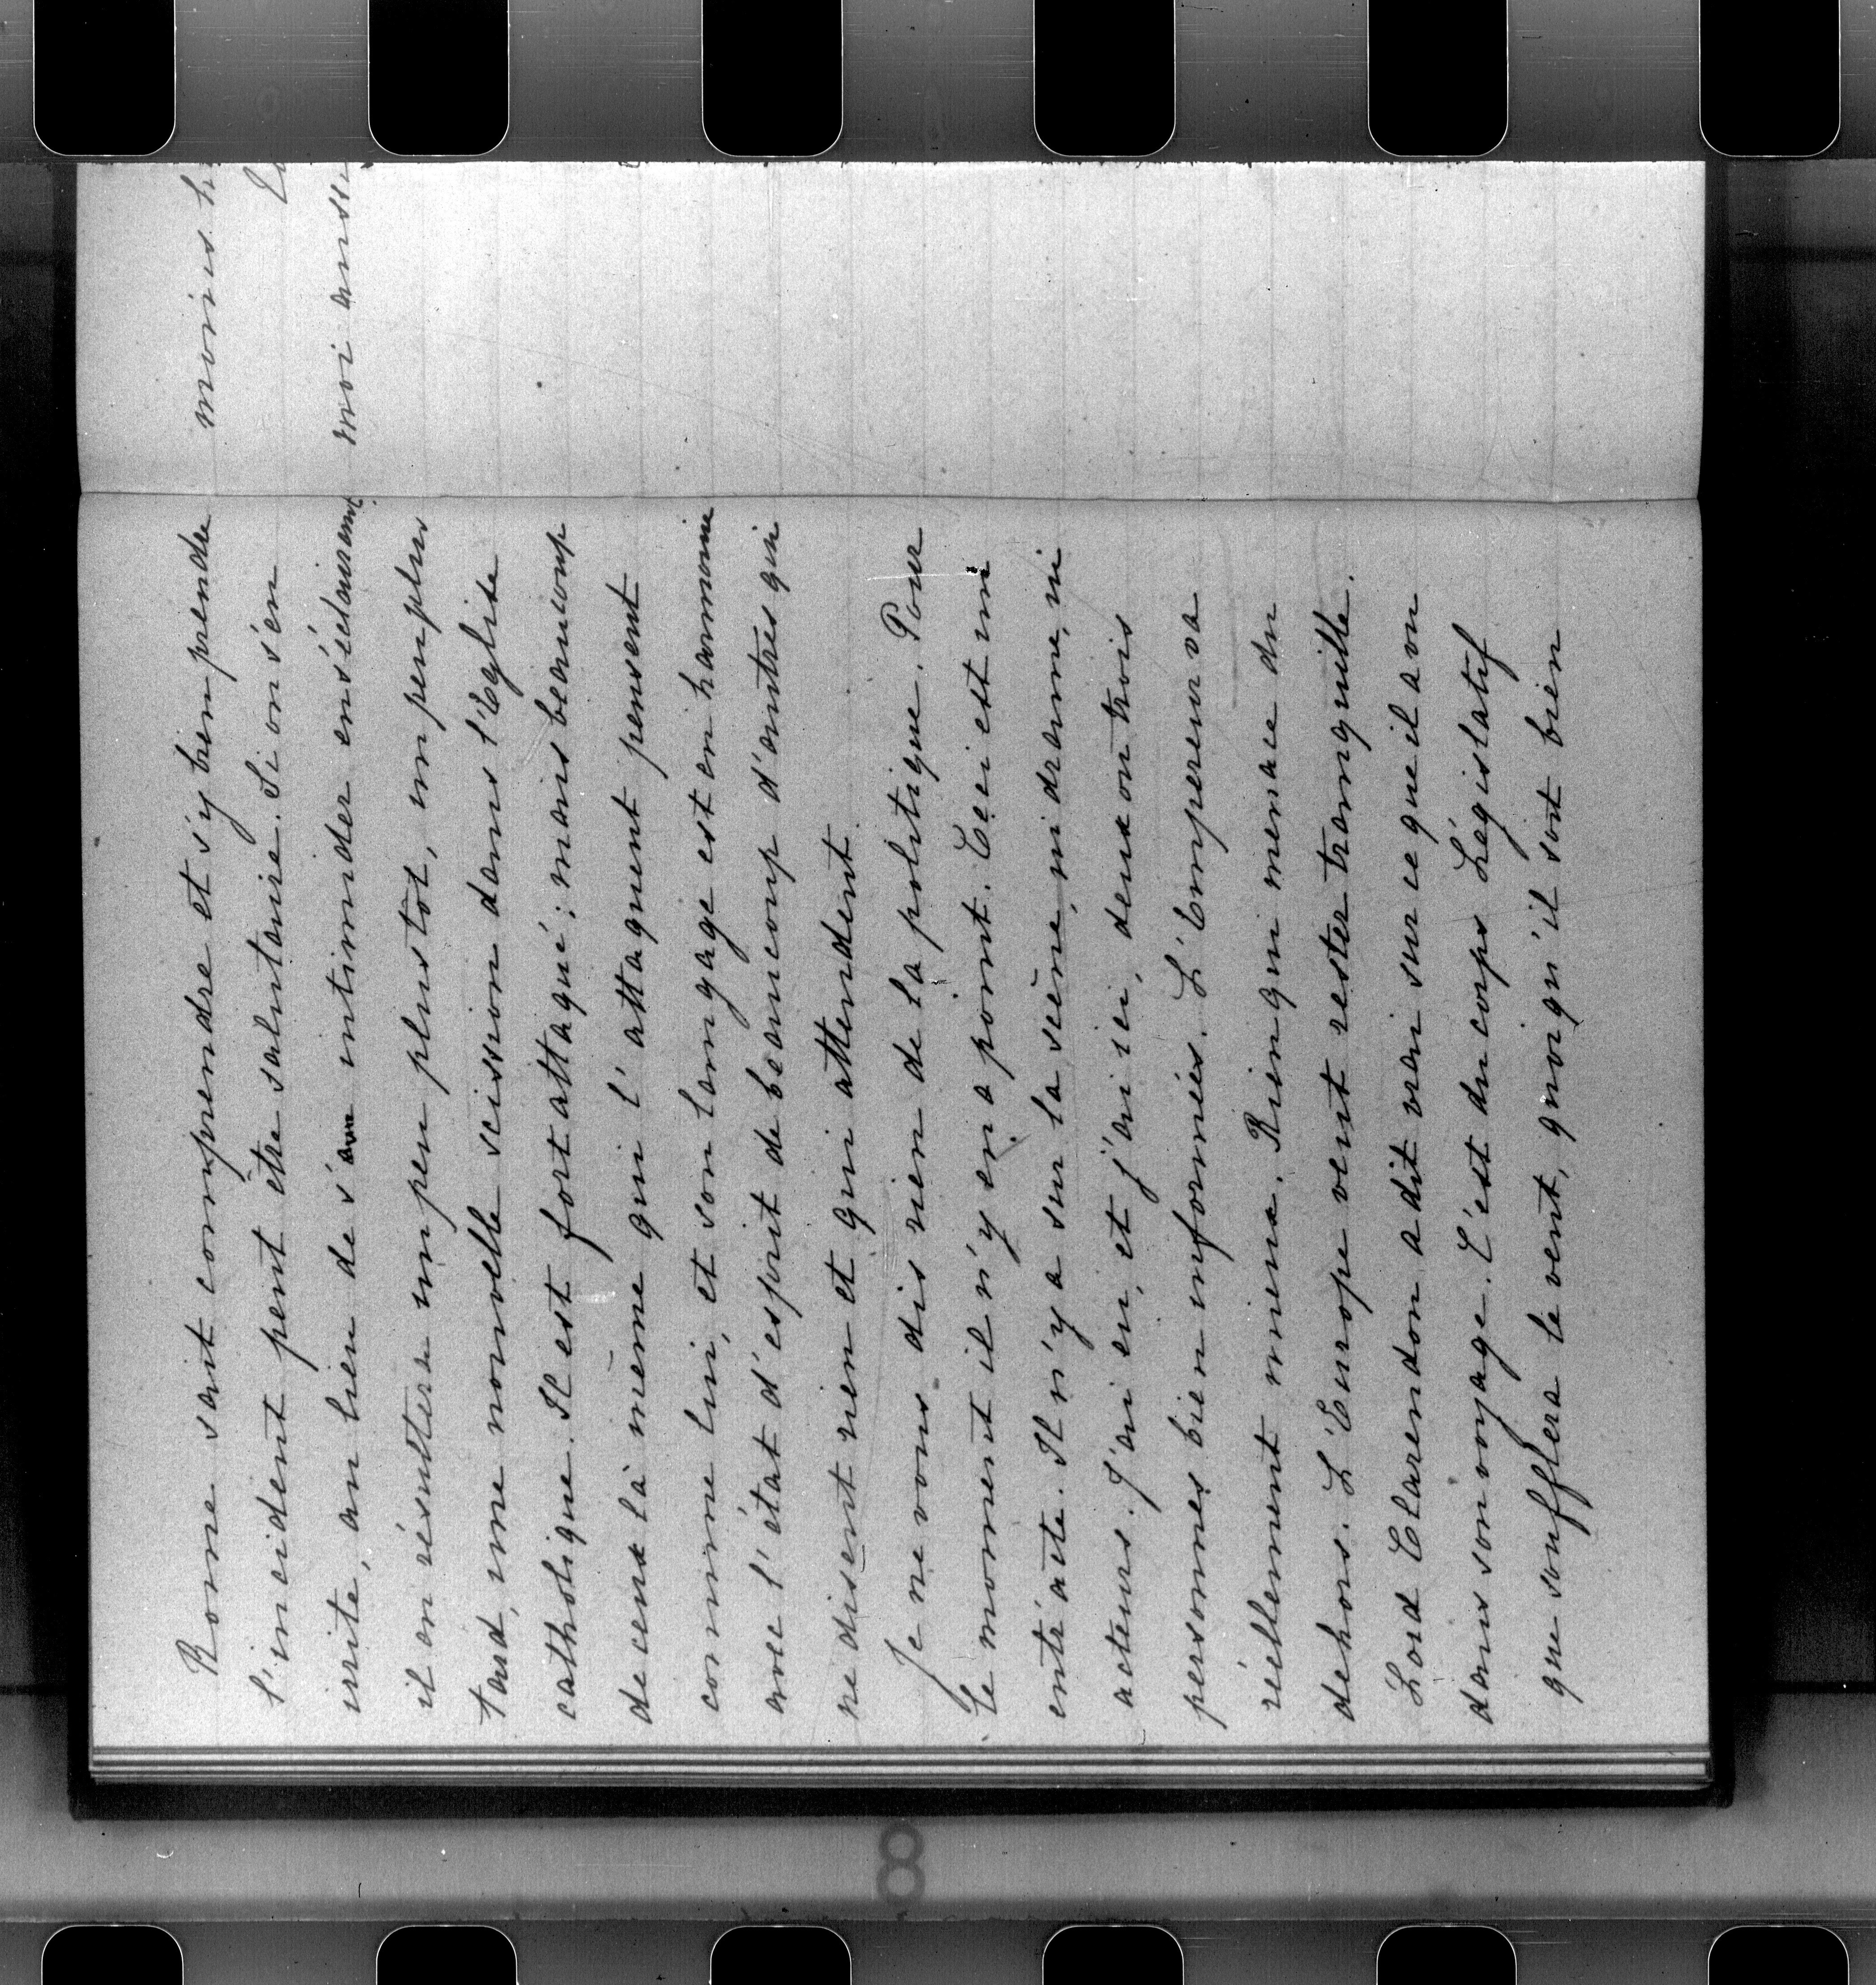 Rome sait comprendre et s'y bien prendre
l'incident peut être salutaire. Si on s'en
irrite, au lieu de s'en intimider en s'éclairant
il en résultera un peu plus tôt, un peu plus
tard, une nouvelle scission dans l'Eglise
catholique. Il est fort attaqué; mais beaucoup
de ceux là même qui l'attaquent pensent
comme lui, et son langage est en harmonie
avec l'état d'esprit de beaucoup d'autres qui
ne disent rien et qui attendent.
Je ne vous dis rien de la politique. Pour
le moment il n'y en a point. Ceci est un
entr'acte. Il n'y a sur la scène, ni drame, ni
acteurs. J'ai eu, et j'ai ici, deux ou trois
personnes bien informées. L'Empereur va
réellement mieux. Rien qui menace du
dehors. L'Europe veut rester tranquille.
Lord Clarendon a dit vrai sur ce que il a vu
dans son voyage. C'est du corps Législatif
que soufflera le vent, quoiqu'il soit bien
moins
moi aussi